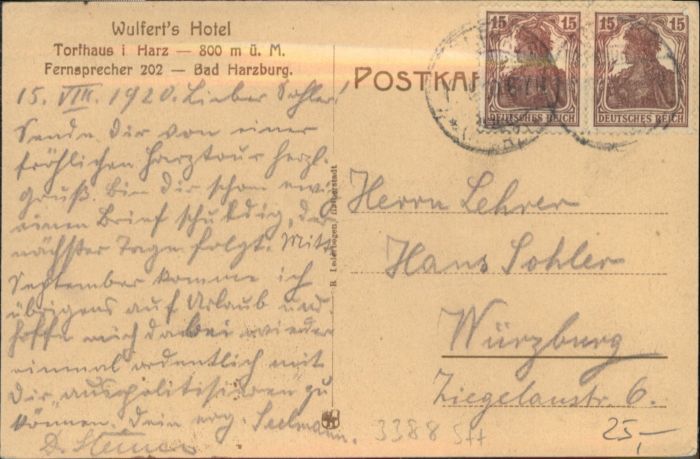 Wulfert's Hotel
Torfhaus i Harz — 800 m ü. M.
Fernsprecher 202 — Bad Harzburg.
POSTKAR
15 15
15 15
DEUTSCHES REICH
DEUTSCHES REICH
15. VIII. 1920. Lieber Sohler!
Sende dir von einer
fröhlichen Harztour herzl.
Gruß. Bin dir schon
einen Brief schuldig, der
nächster Tage folgt. Mitte
September komme ich
übrigens auf Urlaub und
hoffe mich dabei wieder
einmal ordentlich mit
Dir "auspolitisieren" zu
können. Dein erg. Seelmann.
Herrn Lehrer
Hans Sohler
Würzburg
Ziegelaustr. 6.
3388
25,-